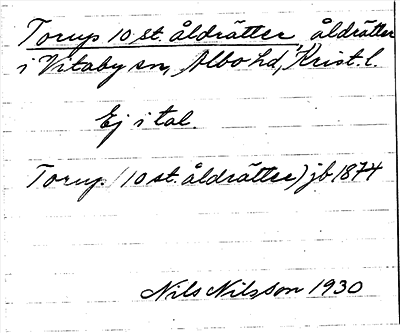 Torups 10 st. åldrätter åldrätter
i Vitaby sn, Albo hd, Krist. l.
Ej i tal.
Torup. (10 st. åldrätter) jb 1874
Nils Nilsson 1930